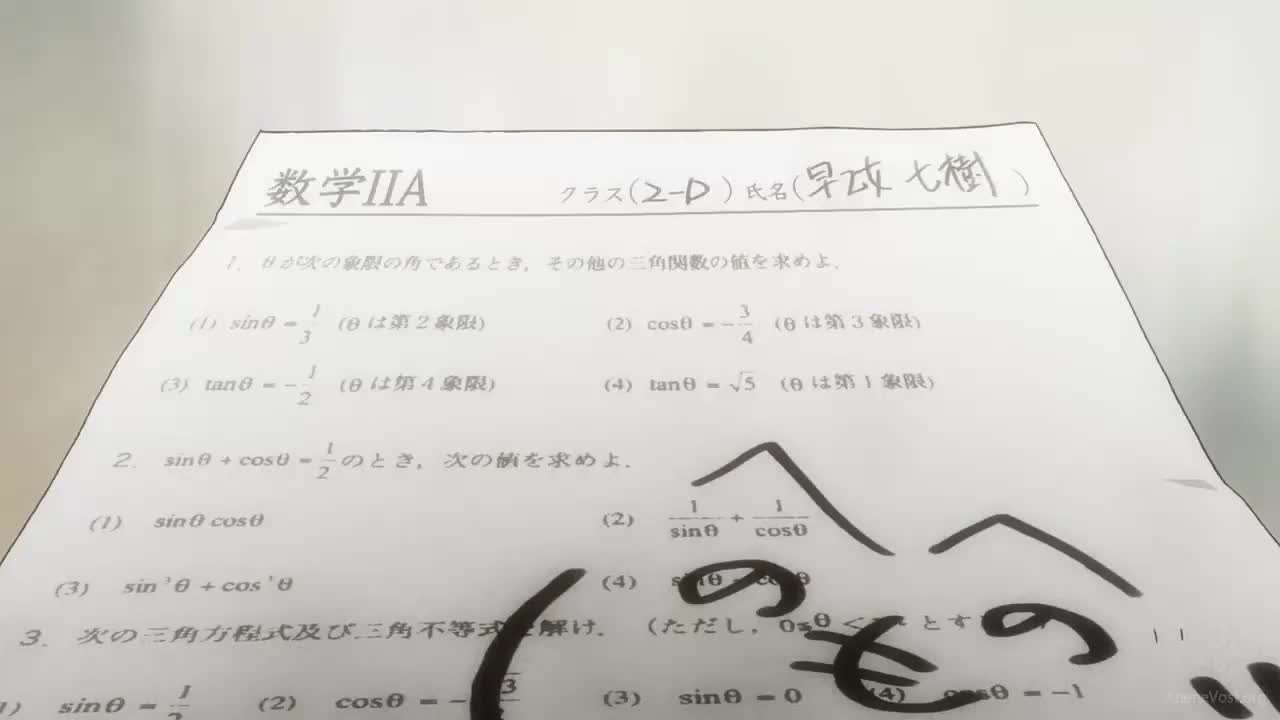 数学IIA クラス(2-D) 氏名(早坂 七樹)
1. θが次の象限の角であるとき,その他の三角関数の値を求めよ.
(1) sinθ = 1/3 (θは第2象限) (2) cosθ = -3/4 (θは第3象限)
(3) tanθ = -1/2 (θは第4象限) (4) tanθ = √5 (θは第1象限)
2. sinθ + cosθ = 1/2 のとき,次の値を求めよ.
(1) sinθ cosθ (2) 1/sinθ + 1/cosθ
(3) sin³θ + cos³θ (4) sinθ - cosθ
3. 次の三角方程式及び三角不等式を解け. (ただし, 0≦θ< とす
(1) sinθ = 1/2 (2) cosθ = - (3) sinθ = 0 (4) cosθ = -1
へ へ
の の
も
AnimeVost.org